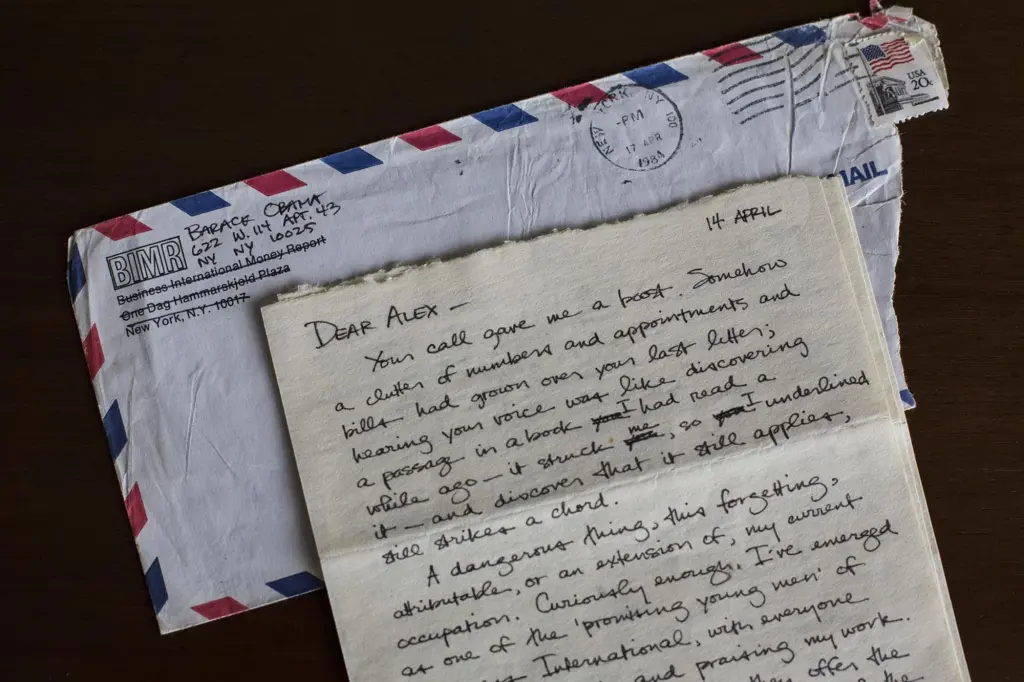 BARACK OBAMA
622 W. 114 APT. 43
NY NY 10025
BIMR
Business International Money Report
One Dag Hammarskjold Plaza
New York, N.Y. 10017
NEW YORK, NY 100
-PM
17 APR
1984
USA
20c
MAIL
14 APRIL
DEAR ALEX —
Your call gave me a boost. Somehow
a clutter of numbers and appointments and
bills had grown over your last letter;
hearing your voice was like discovering
a passage in a book you I had read a
while ago — it struck you me, so you I underlined
it — and discover that it still applies,
still strikes a chord.
A dangerous thing, this forgetting,
attributable, or an extension of, my current
occupation. Curiously enough, I've emerged
as one of the 'promising young men' of
International, with everyone
and praising my work.
offer the
the